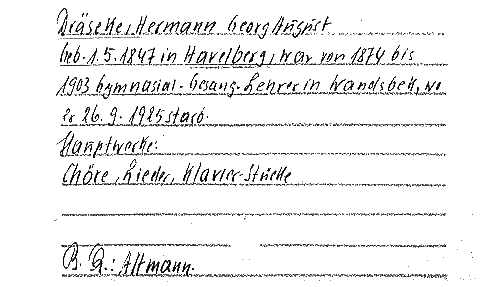 Dräseke, Hermann Georg August
geb. 1.5.1847 in Havelberg, war von 1874 bis
1903 Gymnasial-Gesang-Lehrer in Wandsbek, wo
er 26.9.1925 starb.
Hauptwerke:
Chöre, Lieder, Klavier-Stücke
B. Q.: Altmann.